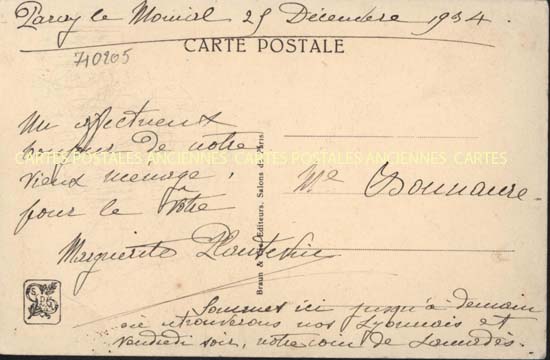 Paray le Monial 25 Décembre 1934.
CARTE POSTALE
710205
Un affectueux
bonjour de notre
vieux menage,
pour le vôtre
Marguerite
Mme Bonnaure
CARTES POSTALES ANCIENNES CARTES POSTALES ANCIENNES CARTES
Braun & Cie, Editeurs, Salons de Paris
Sommes ici jusqu'à demain
où retrouverons nos Lyonnais et
vendredi soir, notre coin de